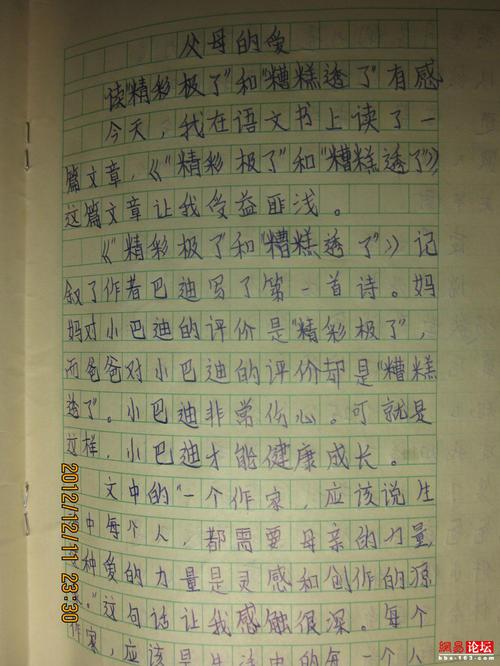 父母的爱
读"精彩极了"和"糟糕透了"有感
今天,我在语文书上读了一
篇文章,《"精彩极了"和"糟糕透了"》
这篇文章让我受益匪浅。
《"精彩极了和"糟糕透了"》记
叙了作者巴迪写了第一首诗。妈
妈对小巴迪的评价是"精彩极了",
而爸爸对小巴迪的评价却是"糟糕
透了"。小巴迪非常伤心。可就是
这样,小巴迪才能健康成长。
文中的"一个作家,应该说生
中每个人,都需要母亲的力量,
种爱的力量是灵感和创作的源
"这句话让我感触很深。每个
作家,应该是生活中的每一个人
2012/12/11 23:30
网易论坛
bbs.163.com